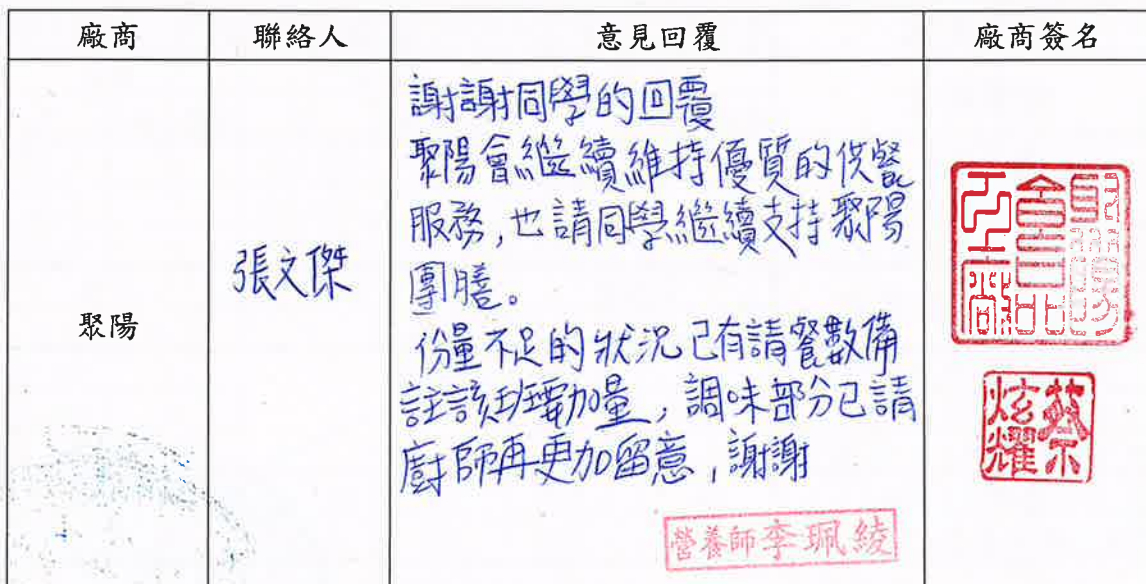 廠商 聯絡人 意見回覆 廠商簽名
聚陽
張文傑
謝謝同學的回覆
聚陽會繼續維持優質的供餐
服務,也請同學繼續支持聚陽
團膳。
份量不足的狀況已有請餐數備
註該班要加量,調味部分已請
廚師再更加留意,謝謝
營養師李珮綾
聚陽食品工廠
蔡炫耀